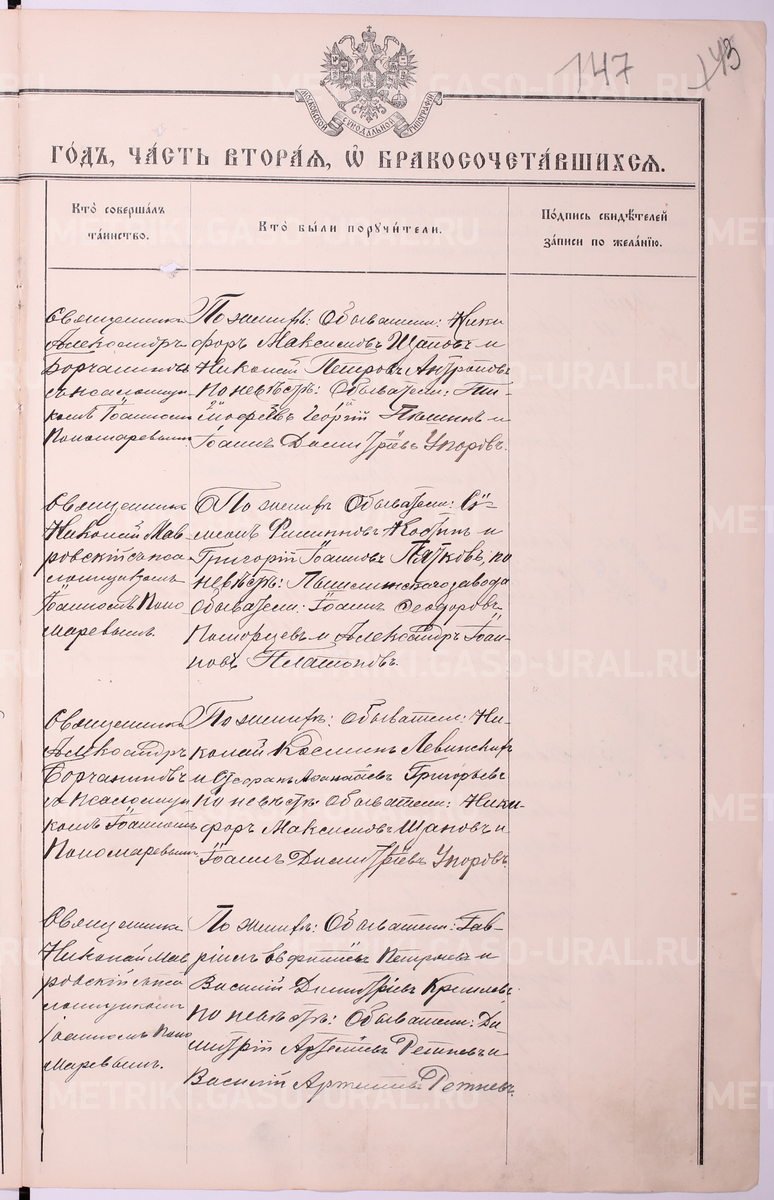 147
143
МОСКОВСКОЙ СѴНОДАЛЬНОЙ ТИПОГРАФІИ
ГО́ДЪ, ЧА́СТЬ ВТОРА́Я, Ѡ҆ БРАКОСОЧЕТА́ВШИХСЯ.
Кто̀ соверша́лъ
та́инство.
Кто̀ бы́ли поручи́тели.
По́дпись свидѣ́телей
за́писи по жела́нїю.
Священникъ
Александръ
Борчаниновъ
съ псаломщи-
комъ Іоанномъ
Пономаревымъ
По женихѣ: Обыватели: Ники-
форъ Максимовъ Щаповъ и
Николай Петровъ Антроповъ
по невѣстѣ: Обыватели: Ти-
мофѣевъ Георгій и
Іоаннъ Димитріевъ Упоровъ.
Священникъ
Николай Мав-
ровскій съ пса-
ломщикомъ
Іоанномъ Поно-
маревымъ.
По женихѣ Обыватели: Сѵ-
меонъ Филиповъ Костинъ и
Григорій Іоанновъ Пятковъ, по
невѣстѣ: Пышминскаго завода
Обыватели: Іоаннъ Феодоровъ
Поморцевъ и Александръ Іоан-
новъ Платоновъ.
Священникъ
Александръ
Борчаниновъ
съ псаломщи-
комъ Іоанномъ
Пономаревымъ
По женихѣ: Обыватели: Ни-
колай Косминъ Левинскихъ
и Стефанъ Аѳанасіевъ Григорьевъ
по невѣстѣ Обыватели: Ники-
форъ Максимовъ Щаповъ и
Іоаннъ Димитріевъ Упоровъ.
Священникъ
Николай Мав-
ровскій съ пса-
ломщикомъ
Іоанномъ Поно-
маревымъ.
По женихѣ: Обыватели: Гав-
ріилъ Петровъ и
Василій Димитріевъ
по невѣстѣ: Обыватели: Ди-
митрій Артеміевъ Ретневъ и
Василій Артеміевъ Ретневъ.
METRIKI.GASO-URAL.RU